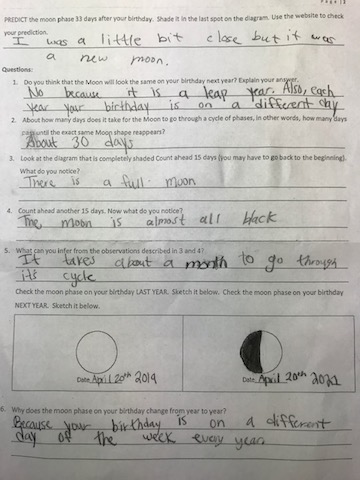 Page | 3
PREDICT the moon phase 33 days after your birthday. Shade it in the last spot on the diagram. Use the website to check
your prediction.
I was a little bit close but it was
a new moon.
Questions:
1. Do you think that the Moon will look the same on your birthday next year? Explain your answer.
No because it is a leap year. Also, each
year your birthday is on a different day
2. About how many days does it take for the Moon to go through a cycle of phases, in other words, how many days
pass until the exact same Moon shape reappears?
About 30 days
3. Look at the diagram that is completely shaded Count ahead 15 days (you may have to go back to the beginning).
What do you notice?
There is a full moon
4. Count ahead another 15 days. Now what do you notice?
The moon is almost all black
5. What can you infer from the observations described in 3 and 4?
It takes about a month to go through
its cycle
Check the moon phase on your birthday LAST YEAR. Sketch it below. Check the moon phase on your birthday
NEXT YEAR. Sketch it below.
Date April 20th 2019
Date April 20th 2021
6. Why does the moon phase on your birthday change from year to year?
Because your birthday is on a different
day of the week every year